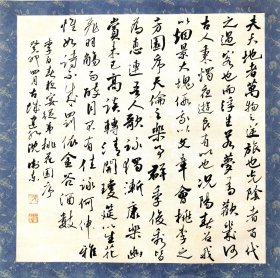 夫天地者萬物之逆旅也光陰者百代
之過客也而浮生若夢為歡幾何
古人秉燭夜遊良有以也況陽春召我
以烟景大塊假我以文章會桃李之
芳園序天倫之樂事群季俊秀皆
為惠連吾人歌詠獨慚康樂幽
賞未已高談轉清開瓊筵以坐花
飛羽觴而醉月不有佳詠何伸雅
懷如詩不成罰依金谷酒數
李白春夜宴從弟桃花園序
癸卯四月古